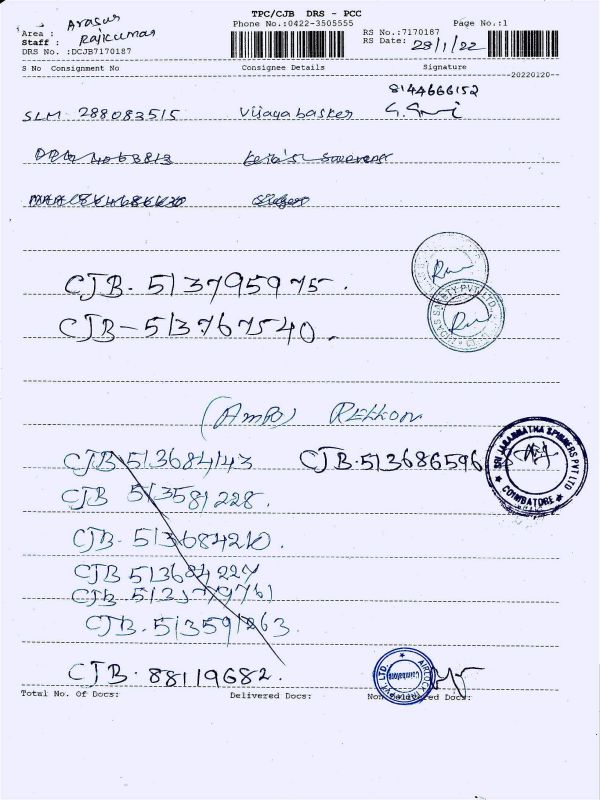 TPC/CJB DRS - PCC
Phone No.:0422-3505555 Page No.:1
Area : Arasur
Staff : Rajkumar
DRS No. :DCJB7170187
RS No.:7170187
RS Date: 28/1/22
S No Consignment No Consignee Details Signature
20220120
8144666152
SLM 288083515 Vijaya basker
CJB- 513795975.
CJB-513767540.
(AMPO) RELKON
CJB 513684143 CJB-513686596
SRI JAGANNATHA SPINNERS PVT LTD
COIMBATORE
CJB 513581228.
CJB- 513684210.
CJB 513684227
CJB. 513591263
CJB. 88119682.
AIRLOCK PVT. LTD.
Coimbatore
Total No. Of Docs: Delivered Docs: Non Delivered Docs: